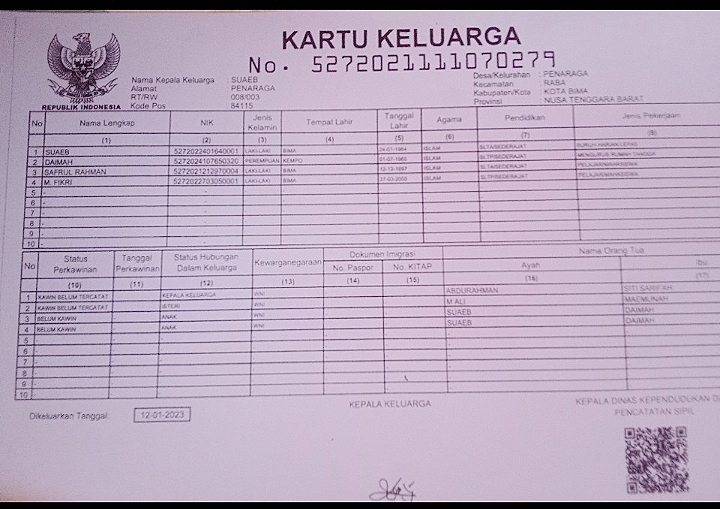 KARTU KELUARGA
No. 5272021111070279
REPUBLIK INDONESIA
Nama Kepala Keluarga : SUAEB
Alamat : PENARAGA
RT/RW : 008/003
Kode Pos : 84115
Desa/Kelurahan : PENARAGA
Kecamatan : RABA
Kabupaten/Kota : KOTA BIMA
Provinsi : NUSA TENGGARA BARAT
No Nama Lengkap NIK Jenis Kelamin Tempat Lahir Tanggal Lahir Agama Pendidikan Jenis Pekerjaan
(1) (2) (3) (4) (5) (6) (7) (8)
1 SUAEB 5272022401640001 LAKI-LAKI BIMA 24-01-1964 ISLAM SLTA/SEDERAJAT BURUH HARIAN LEPAS
2 DAIMAH 5272024107650320 PEREMPUAN KEMPO 01-07-1965 ISLAM SLTA/SEDERAJAT MENGURUS RUMAH TANGGA
3 SAFRUL RAHMAN 5272021212970004 LAKI-LAKI BIMA 12-12-1997 ISLAM SLTA/SEDERAJAT PELAJAR/MAHASISWA
4 M. FIKRI 5272022703050001 LAKI-LAKI BIMA ISLAM SLTP/SEDERAJAT PELAJAR/MAHASISWA
5 -
6 -
7 -
8 -
9 -
10 -
No Status Perkawinan Tanggal Perkawinan Status Hubungan Dalam Keluarga Kewarganegaraan Dokumen Imigrasi No. Paspor No. KITAP Nama Orang Tua Ayah Ibu
(10) (11) (12) (13) (14) (15) (16) (17)
1 KAWIN BELUM TERCATAT KEPALA KELUARGA WNI ABDURAHMAN SITI SARIFAH
2 KAWIN BELUM TERCATAT ISTERI WNI M.ALI MAEMUNAH
3 BELUM KAWIN ANAK WNI SUAEB DAIMAH
4 BELUM KAWIN ANAK WNI SUAEB DAIMAH
5 -
6 -
7 -
8 -
9 -
10 -
Dikeluarkan Tanggal: 12-01-2023
KEPALA KELUARGA
KEPALA DINAS KEPENDUDUKAN
PENCATATAN SIPIL